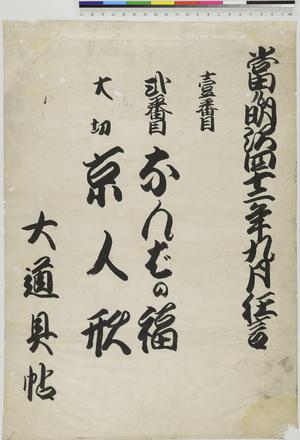 當ル明治四十二年九月狂言
壹番目
弐番目 なんばの福
大切 京人形
大道具帖